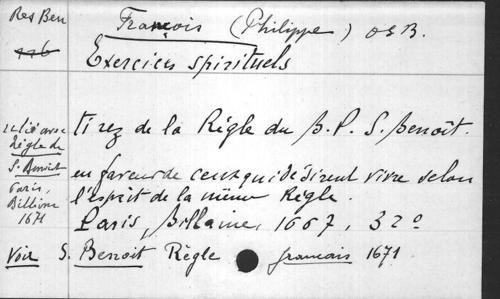 Res Ben
Francois (Philippe) OSB.
Exercices spirituels
relié avec
Règle de
S. Benoit
Paris,
Billaine
1671
tirez de la Règle du B. P. S. Benoit.
en faveur de ceux qui désirent vivre selon
l'esprit de la même Règle.
Paris, Billaine, 1667, 32º
Voir S. Benoit Règle francais 1671